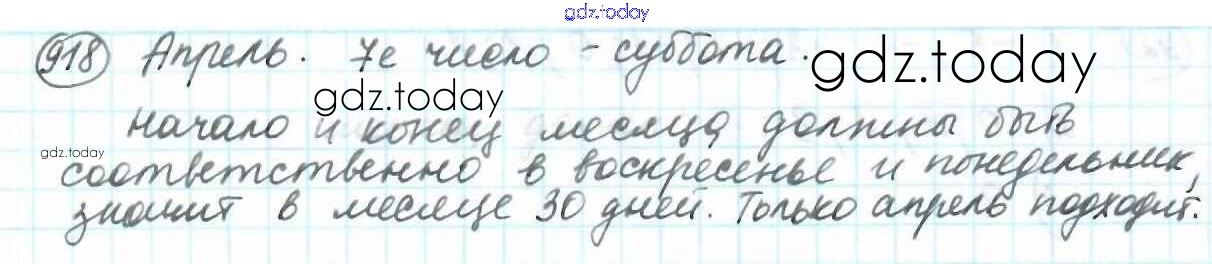 gdz.today
918 Апрель. 7е число - суббота.
gdz.today
gdz.today
Начало и конец месяца должны быть
gdz.today
соответственно в воскресенье и понедельник,
значит в месяце 30 дней. Только апрель подходит.